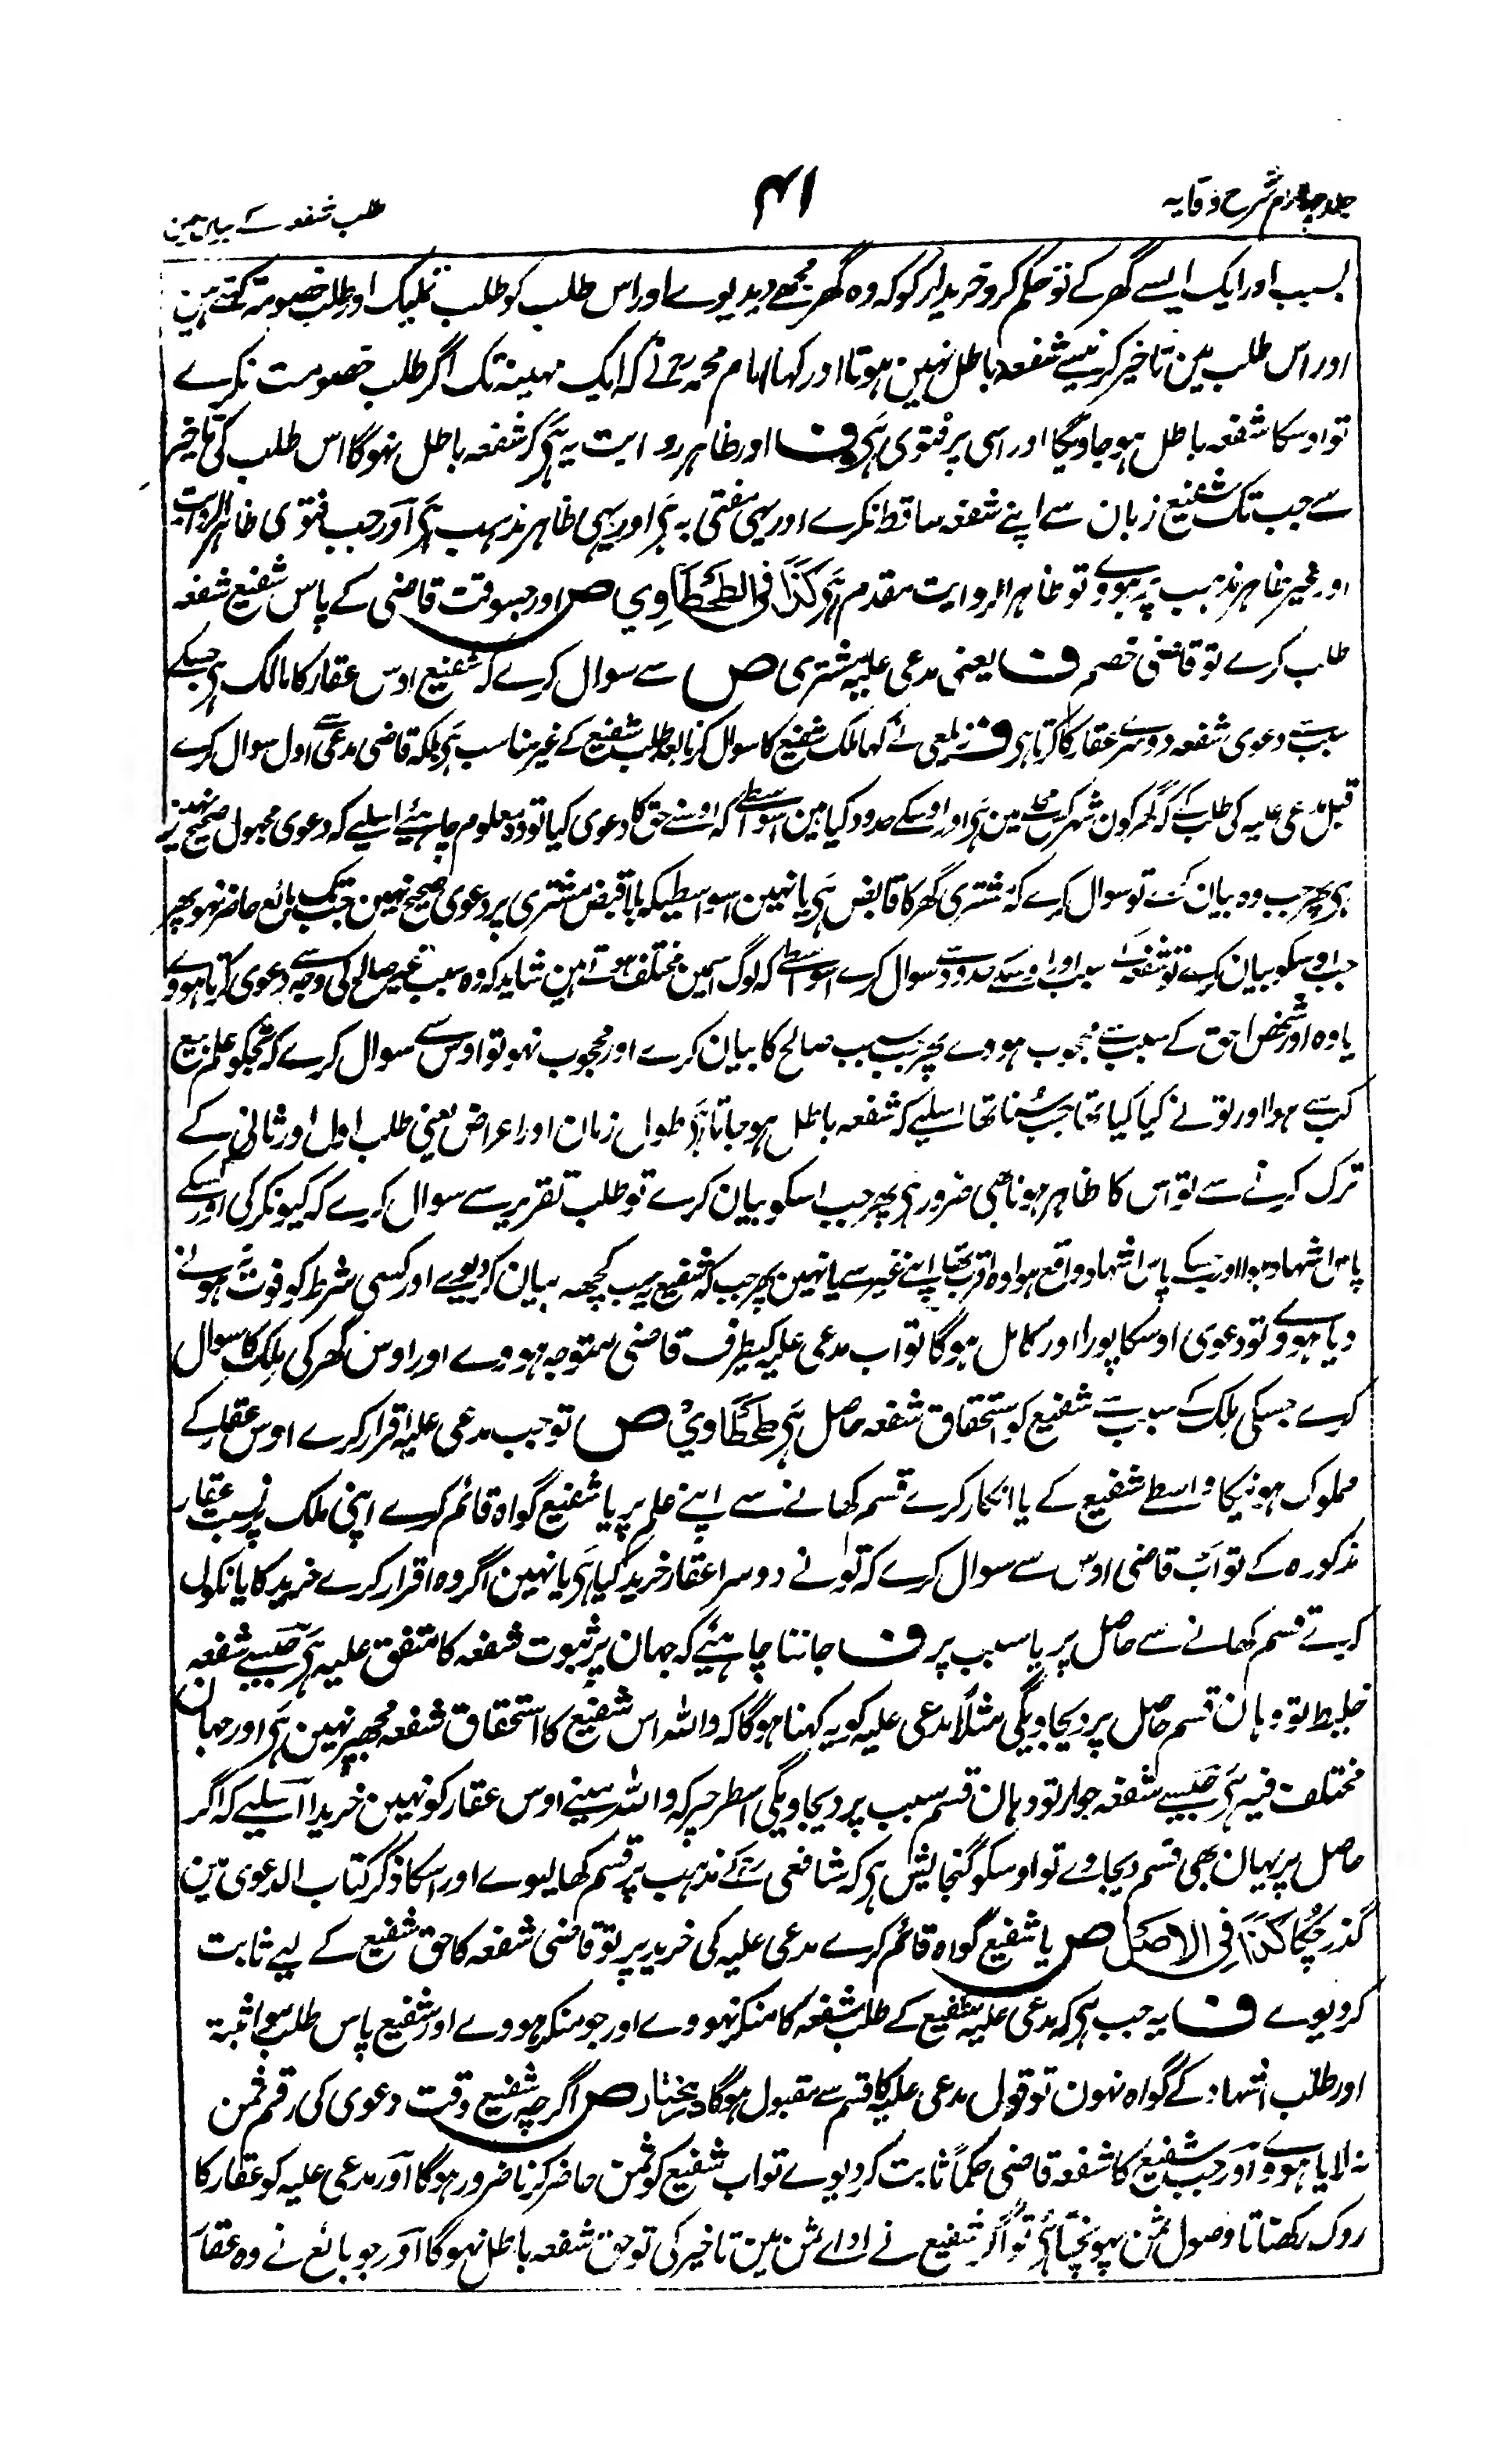 جلد چہارم شرح وقایہ
۴۱
طلب شفعہ کے بیان مین
بسبب اور ایک ایسے گھر کے تو حکم کرو خریدار کو کہ وہ گھر مجھے دیدیوے اور اس طلب کو طلب تملیک اور طلب خصومتہ کہتے ہین
اور اس طلب مین تاخیر کرنیسے شفعہ باطل نہین ہوتا اور کہا امام محمد رح نے کہ ایک مہینہ تک اگر طلب خصومت نکرے
تو اوسکا شفعہ باطل ہو جاویگا اور اسی پر فتوی ہی ف اور ظاہر روایت یہ ہی کہ شفعہ باطل نہوگا اس طلب کی تاخیر
سے جب تک شفیع زبان سے اپنے شفعہ ساقط نکرے اور یہی مفتی بہ ہی اور یہی ظاہر مذہب ہی اور جب فتوی ظاہر الروایت
اور غیر ظاہر مذہب پر ہووے تو ظاہر الروایت مقدم ہی کذا فی الطحطاوی ص اور جسوقت قاضی کے پاس شفیع شفعہ
طلب کرے تو قاضی خصم ف یعنی مدعی علیہ مشتری ص سے سوال کرے کہ شفیع اوس عقار کا مالک ہی جسکے
سبب سے دعوی شفعہ دوسرے عقار کا کرتا ہی ف زیلعی نے کہا ملک شفیع کا سوال کرنا بعد طلب شفیع کے غیر مناسب ہی بلکہ قاضی مدعی سے اول سوال کرے
قبل مدعی علیہ کی طلب کے کہ گھر کون شہر کس محلے مین ہی اور اوسکے حدود کیا ہین اسواسطے کہ اوسنے حق کا دعوی کیا تو وہ معلوم چاہیئے اسلیے کہ دعوی مجہول صحیح نہین
ہی پھر جب وہ بیان کرے تو سوال کرے کہ مشتری گھر کا قابض ہی یا نہین اسواسطیکہ بلا قبض مشتری پر دعوی صحیح نہین جبتک بائع حاضر نہو پھر
جب اوسکو بیان کرے تو شفعہ کے سبب اور اوسکے حدود سے سوال کرے اسواسطے کہ لوگ اسمین مختلف ہوتے ہین شاید کہ وہ سبب غیر صالح کی وجہ سے دعوی کرتا ہووے
یا وہ اور شخص احق کے سبب سے محجوب ہووے پھر جب سبب صالح کا بیان کرے اور محجوب نہو تو اوس سے سوال کرے کہ تجکو علم بیع
کب سے ہوا اور تو نے کیا کیا تھا جب سُنا تھا اسلیے کہ شفعہ باطل ہو جاتا ہی طول زمان اور اعراض یعنی طلب اول اور ثانی کے
ترک کرنے سے تو اس کا ظاہر ہونا بھی ضرور ہی پھر جب اسکو بیان کرے تو طلب تقریر سے سوال کرے کہ کیونکر کی اور کسکے
پاس اشہاد ہوا اور جسکے پاس اشہاد واقع ہوا وہ اقرب تھا اپنے غیر سے یا نہین پھر جب کہ شفیع یہ سب کچھ بیان کر دیوے اور کسی شرط کو فوت نہ ہونے
دیا ہووے تو دعوی اوسکا پورا اور کامل ہوگا تو اب مدعی علیہ کیطرف قاضی متوجہ ہووے اور اوس گھر کی مِلک کا سوال
کرے جسکی مِلک کے سبب سے شفیع کو استحقاق شفعہ حاصل ہی طحطاوی ص تو جب مدعی علیہ اقرار کرے اوس عقار کے
مملوک ہونیکا واسطے شفیع کے یا انکار کرے قسم کھانے سے اپنے علم پر یا شفیع گواہ قائم کرے اپنی ملک پر نسبت عقار
مذکورہ کے تو اب قاضی اوس سے سوال کرے کہ تو نے دوسرا عقار خرید کیا ہی یا نہین اگر وہ اقرار کرے خرید کا یا نکول
کرے قسم کھانے سے حاصل پر یا سبب پر ف جاننا چاہیئے کہ جہان پر ثبوت شفعہ کا متفق علیہ ہی جیسے شفعہ
خلیط تو وہان قسم حاصل پر دیجاویگی مثلاً مدعی علیہ کو یہ کہنا ہوگا کہ واللہ اس شفیع کا استحقاق شفعہ مجھپر نہین ہی اور جہان
مختلف فیہ ہی جیسے شفعہ جوار تو وہان قسم سبب پر دیجاویگی اسطرحپر کہ واللہ مینے اوس عقار کو نہین خریدا اسلیے کہ اگر
حاصل پر یہان بھی قسم دیجاوے تو اوسکو گنجایش ہی کہ شافعی رح کے مذہب پر قسم کھا لیوے اور اسکا ذکر کتاب الدعوی مین
گذر چُکا کذا فی الاصل ص یا شفیع گواہ قائم کرے مدعی علیہ کی خرید پر تو قاضی شفعہ کا حق شفیع کے لیے ثابت
کر دیوے ف یہ جب ہی کہ مدعی علیہ شفیع کے طلب شفعہ کا منکر نہووے اور جو منکر ہووے اور شفیع پاس طلب مواثبتہ
اور طلب اشہاد کے گواہ نہون تو قول مدعی علیہ کا قسم سے مقبول ہوگا درمختار ص اگرچہ شفیع وقت دعوی کی رقم ثمن
نہ لایا ہووے اور جب شفیع کا شفعہ قاضی حکماً ثابت کر دیوے تو اب شفیع کو ثمن حاضر کرنا ضرور ہوگا اور مدعی علیہ کو عقار کا
روک رکھنا تا وصول ثمن پہونچتا ہی تو اگر شفیع نے اداے ثمن مین تاخیر کی تو حق شفعہ باطل نہوگا اور جو بائع نے وہ عقار